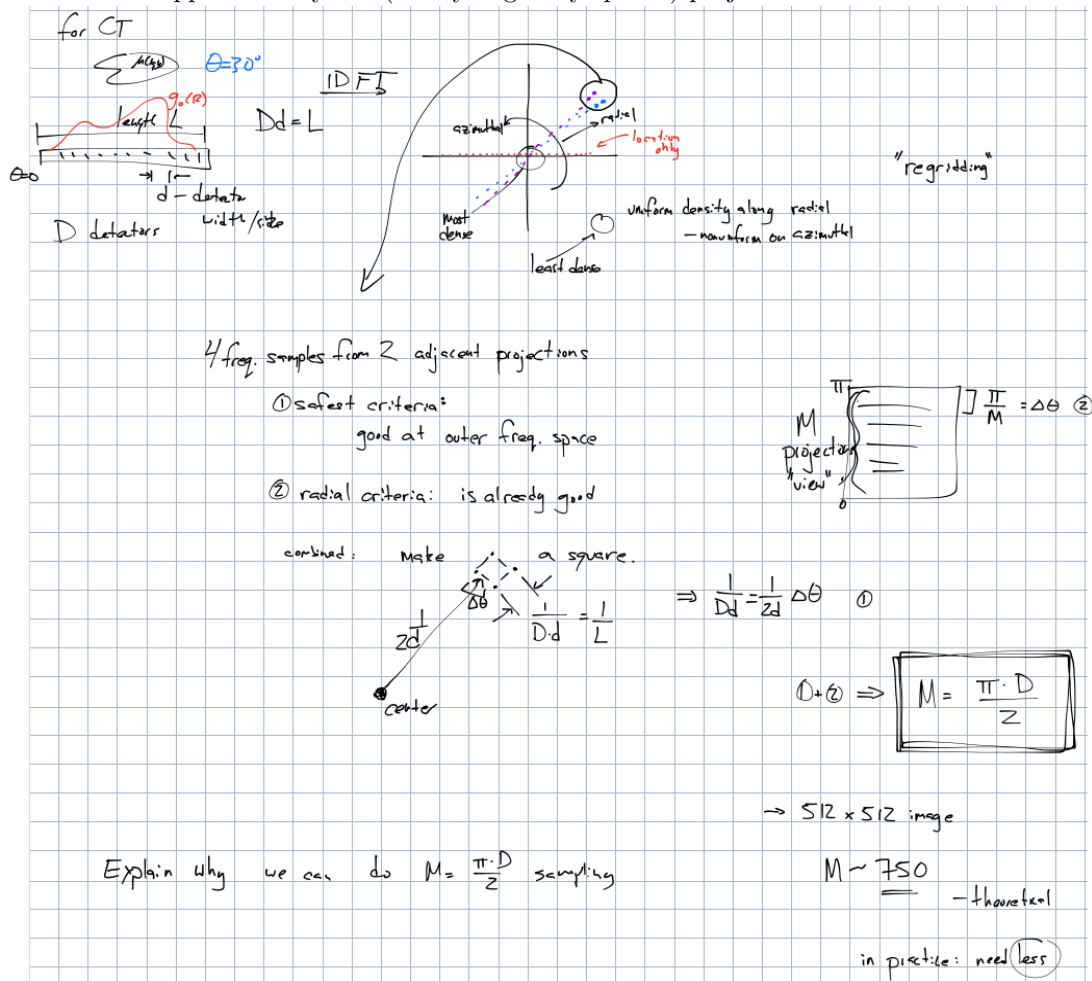 for CT
μ(x,y)
θ=30°
g₀(R)
length L
Dd = L
θ=0
d - detector
width/size
D detectors
1D FT
azimuthal
radial
location
only
most
dense
least dense
uniform density along radial
- nonuniform on azimuthal
"regridding"
4 freq. samples from 2 adjacent projections
① safest criteria:
good at outer freq. space
② radial criteria: is already good
π
M
projections
"view"
0
π/M = Δθ ②
combined: make a square.
Δθ
1/2d
1/D·d = 1/L
center
⇒ 1/Dd = 1/2d Δθ ①
①+② ⇒ M = π·D/2
→ 512 x 512 image
M ~ 750
- theoretical
in practice: need less
Explain why we can do M = π·D/2 sampling